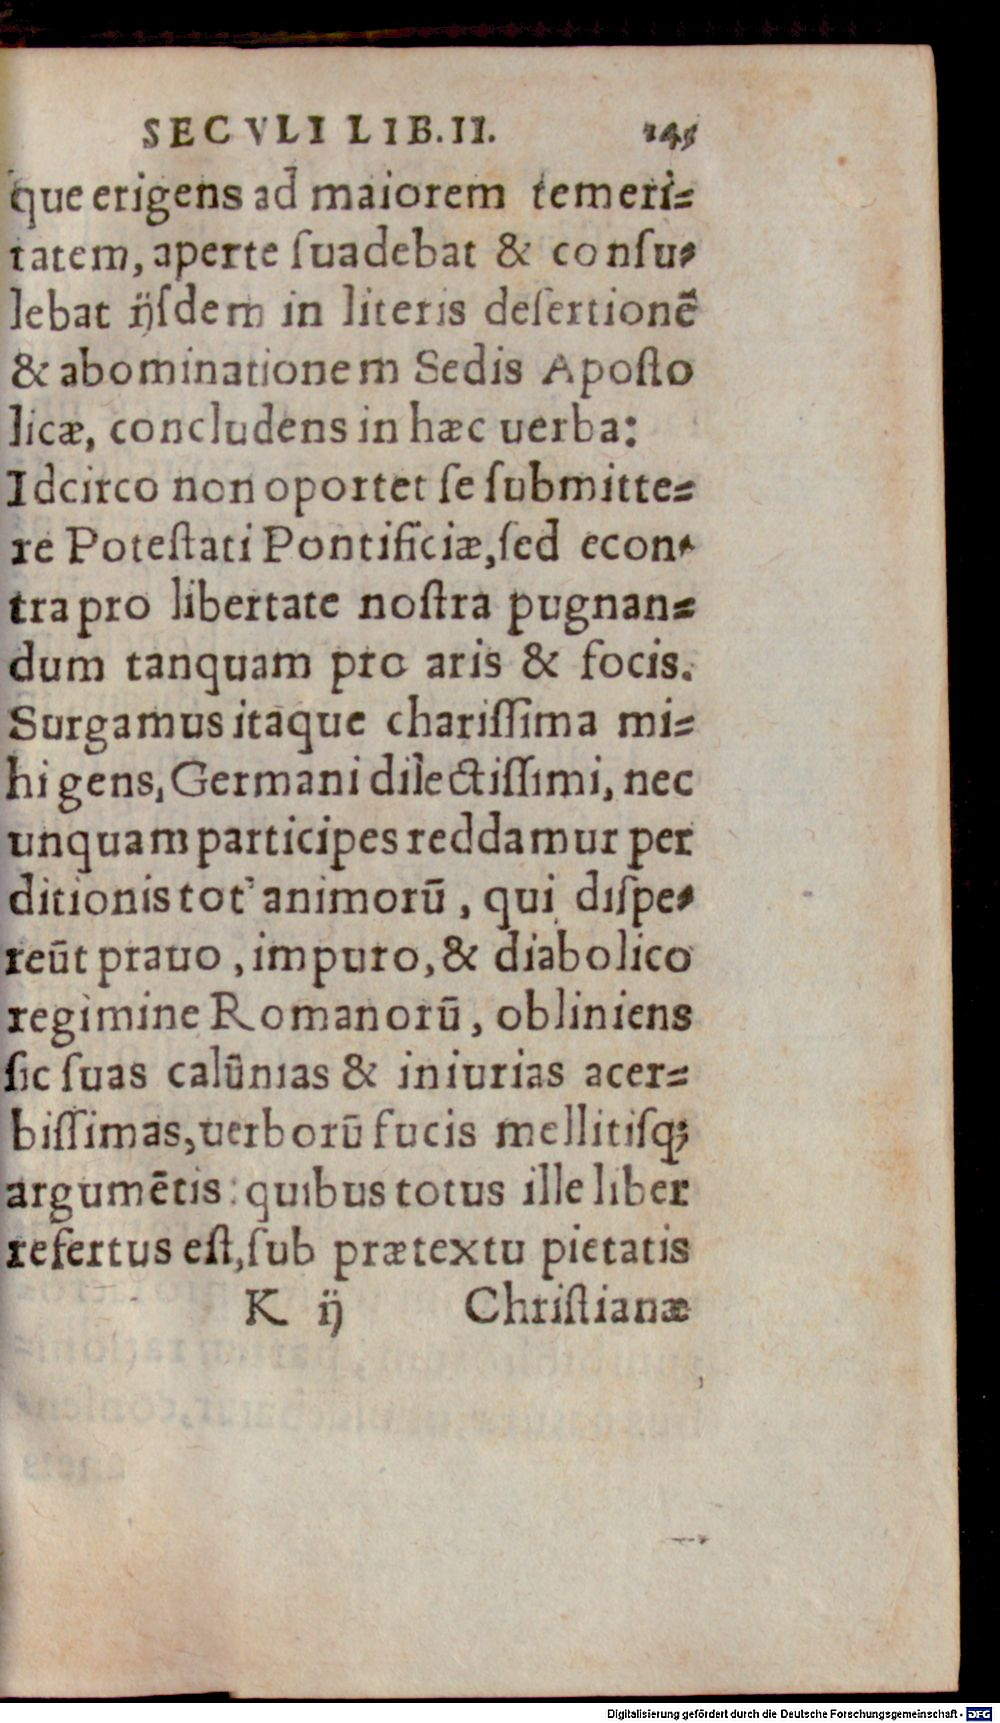 SECVLI LIB. II. 145
que erigens ad maiorem temeri⸗
tatem, aperte ſuadebat & conſu⸗
lebat ijſdem in literis deſertionē
& abominationem Sedis Apoſto
licæ, concludens in hæc uerba:
Idcirco non oportet ſe ſubmitte⸗
re Poteſtati Pontificiæ, ſed econ⸗
tra pro libertate noſtra pugnan⸗
dum tanquam pro aris & focis.
Surgamus itaque chariſſima mi⸗
hi gens, Germani dilectiſſimi, nec
unquam participes reddamur per
ditionis tot animorū, qui diſpe⸗
reūt prauo, impuro, & diabolico
regimine Romanorū, obliniens
ſic ſuas calūnias & iniurias acer⸗
biſſimas, uerborū fucis mellitiſq;
argumētis: quibus totus ille liber
refertus eſt, ſub prætextu pietatis
K ij Chriſtianæ
Digitalisierung gefördert durch die Deutsche Forschungsgemeinschaft - DFG